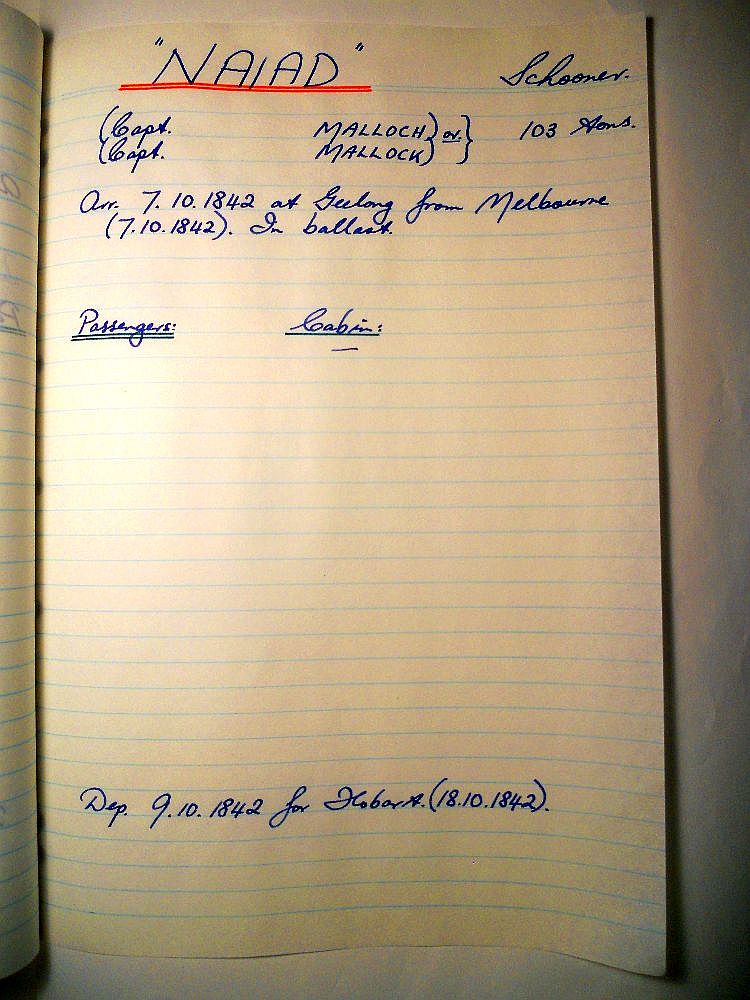 "NAIAD" Schooner.
(Capt. MALLOCH) or } 103 tons.
(Capt. MALLOCK) }
Arr. 7.10.1842 at Geelong from Melbourne
(7.10.1842). In ballast.
Passengers: Cabin:
—
Dep. 9.10.1842 for Hobart. (18.10.1842).